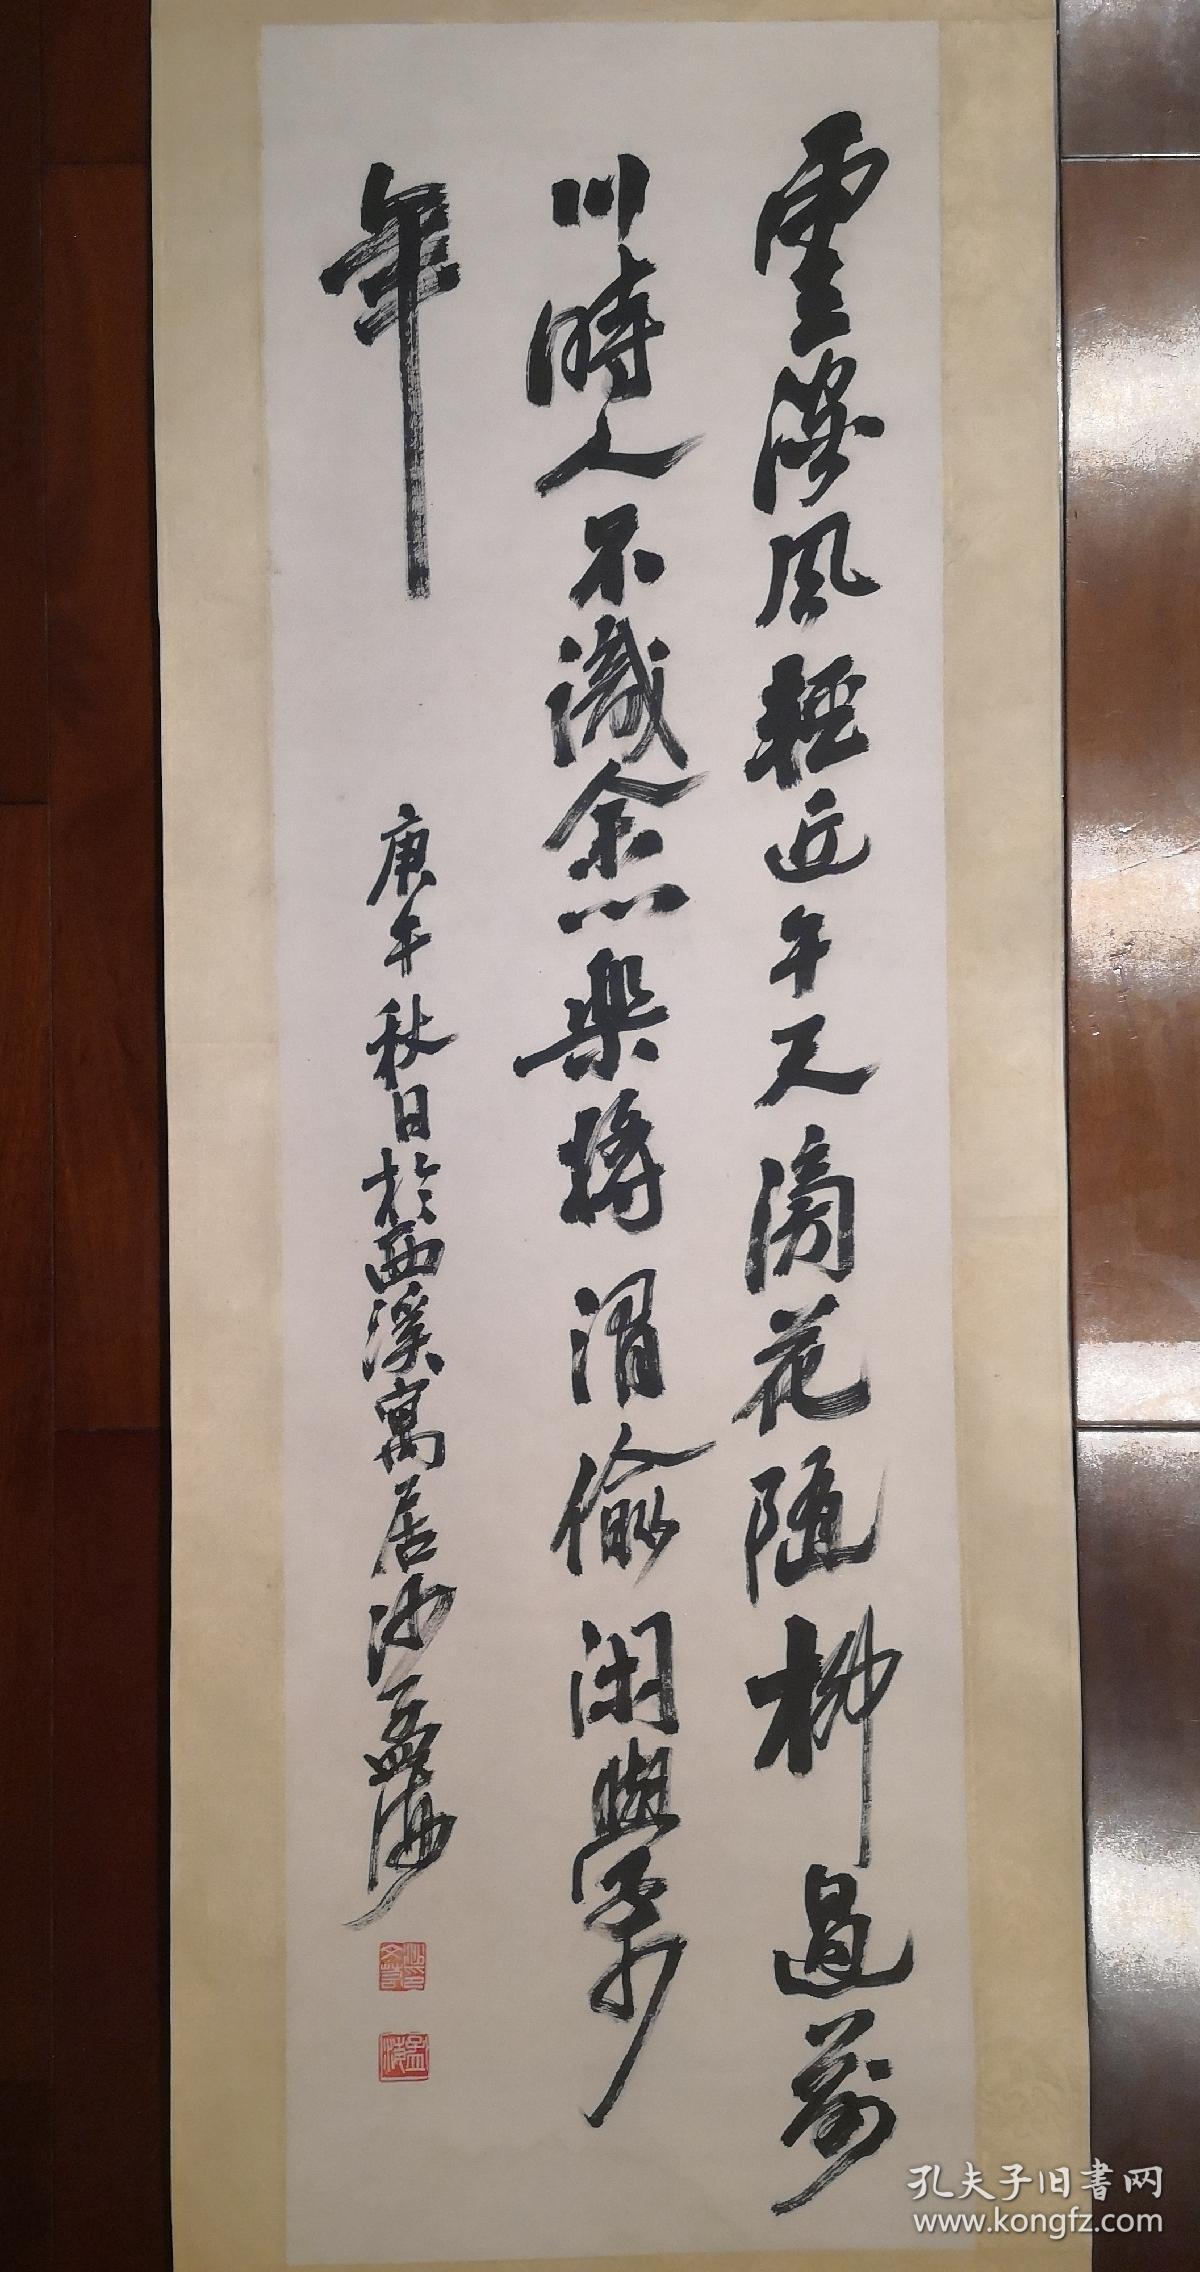 雲淡風輕近午天滂花随柳過前
川時人不識余心樂將謂偷閑學少
年
庚午秋日於西溪寓居沙孟海
沙文若印
孟海
孔夫子旧書网
www.kongfz.com